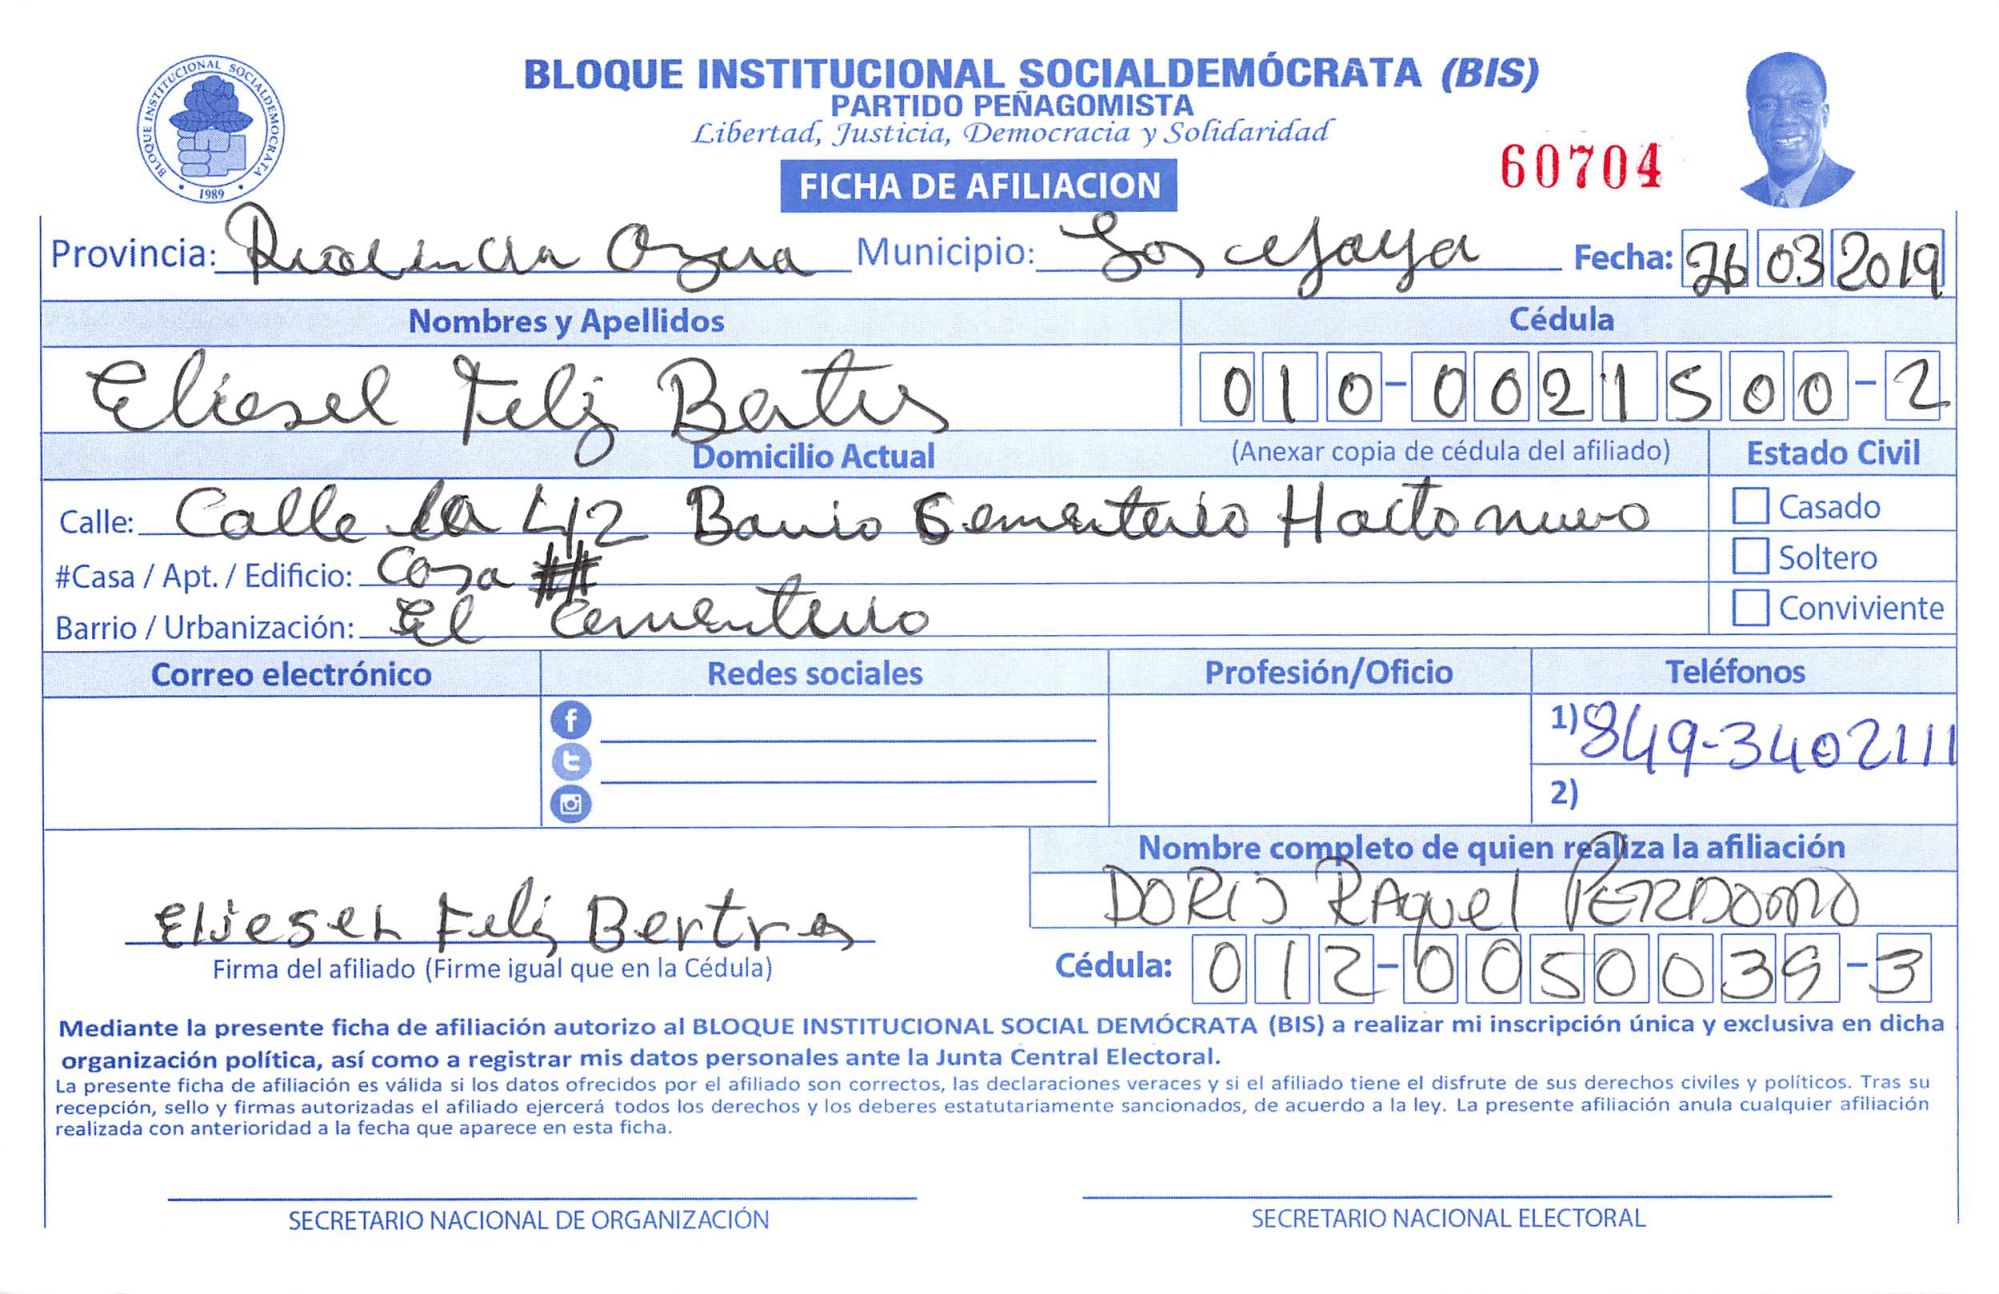 BLOQUE INSTITUCIONAL SOCIALDEMÓCRATA (BIS)
PARTIDO PEÑAGOMISTA
Libertad, Justicia, Democracia y Solidaridad
BLOQUE INSTITUCIONAL SOCIALDEMOCRATA
1989
60704
FICHA DE AFILIACION
Provincia: Provincia Azua Municipio: Fecha: 26 03 2019
Nombres y Apellidos Cédula
Eliesel Feliz 010-0021500-2
Domicilio Actual (Anexar copia de cédula del afiliado) Estado Civil
Calle: Calle la 42 Barrio Cementerio Hacto nuevo Casado
#Casa / Apt. / Edificio: Casa ## Soltero
Barrio / Urbanización: El Cementerio Conviviente
Correo electrónico Redes sociales Profesión/Oficio Teléfonos
1) 849-3402111
2)
Nombre completo de quien realiza la afiliación
DORIS RAquel PERDOMO
Elieser Feliz Bertres
Firma del afiliado (Firme igual que en la Cédula) Cédula: 012-0050039-3
Mediante la presente ficha de afiliación autorizo al BLOQUE INSTITUCIONAL SOCIAL DEMÓCRATA (BIS) a realizar mi inscripción única y exclusiva en dicha
organización política, así como a registrar mis datos personales ante la Junta Central Electoral.
La presente ficha de afiliación es válida si los datos ofrecidos por el afiliado son correctos, las declaraciones veraces y si el afiliado tiene el disfrute de sus derechos civiles y políticos. Tras su
recepción, sello y firmas autorizadas el afiliado ejercerá todos los derechos y los deberes estatutariamente sancionados, de acuerdo a la ley. La presente afiliación anula cualquier afiliación
realizada con anterioridad a la fecha que aparece en esta ficha.
SECRETARIO NACIONAL DE ORGANIZACIÓN SECRETARIO NACIONAL ELECTORAL